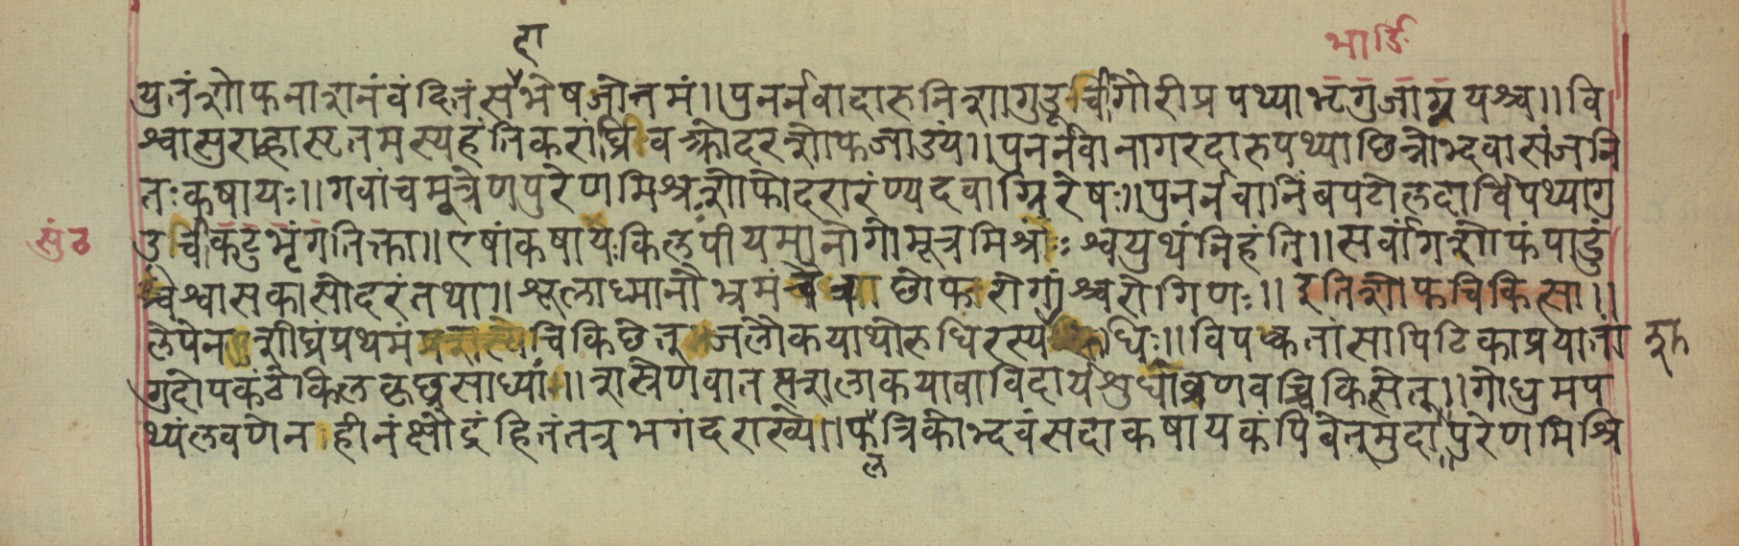 हा
भार्ङि
युतं शोफनाशनं वंदितं सभेषजोत्तमं ॥ पुनर्नवादारुनिशागुडूचीगौरीप्रपथ्याभ्रगुजाग्रयश्च ॥ वि
श्वासुराह्वास्टतमस्यहंतिकरांघ्रिवक्ष्कोदरशोफजाउयं ॥ पुनर्नवानागरदारुपथ्याछिन्नोभ्दवासंजनि
तः कषायः ॥ गवां च मूत्रेण पुरेण मिश्रः शोफोदरारंण्यदवाग्निरेषः ॥ पुनर्नवानिंबपटोलदार्विपथ्यागु
सुंठ
डुचीकटुभृंगतिक्ता ॥ एषां कषायः किल पीयमानो गोमूत्रमिश्रः श्वयुथं निहंति ॥ सर्वांगशोफं पाडुं
चश्वासकासोदरं तथा ॥ शूलाध्मानौ भ्रमं छोफरोगांश्चरोगिणः ॥ इति शोफचिकित्सा ॥
लेपेन शीघ्रं प्रथमं चिकिछेत् जलौकयाथोरुधिरस्य धिः ॥ विपक्कतांसापिटिकाप्रयाता
गुदोपकंठे किल कृछ्रसाध्या ॥ शस्त्रेण वातसशलाकयावाविदार्यशुधांव्रणवच्चिकित्सेत् ॥ गोधुमप
थ्यं लवणेन हीनं क्षौद्रं हितं तत्र भगंदराख्ये ॥ फत्रिकोभ्दवंसदाकषायकंपिबेत्मुदा पुरेणमिश्रि
ल